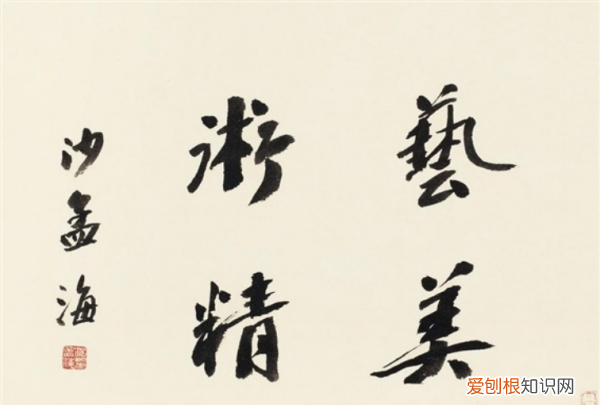 藝美
術精
沙孟海
爱刨根知识网